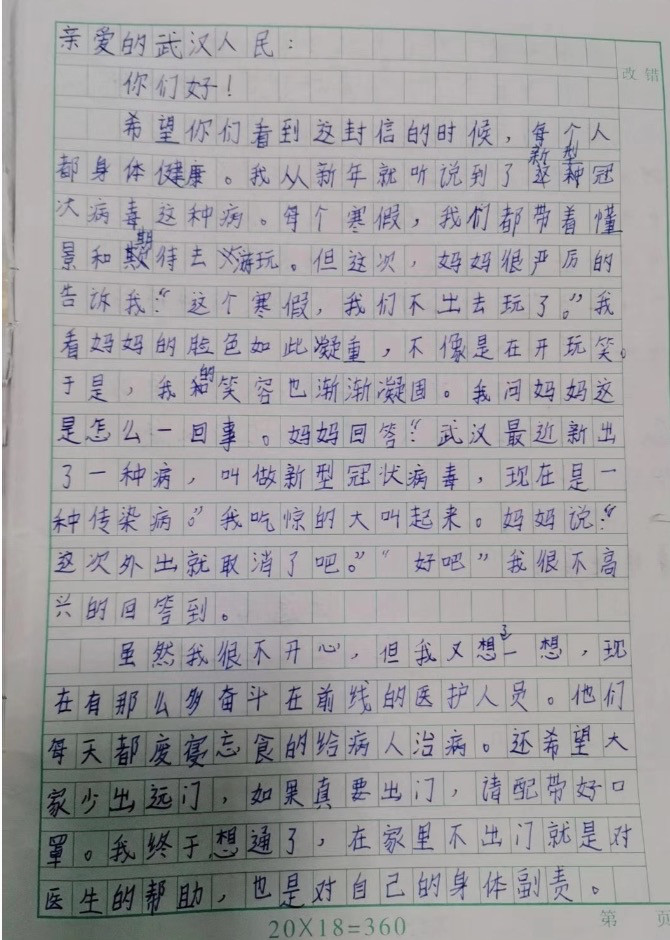 亲爱的武汉人民：
改错
你们好！
希望你们看到这封信的时候，每个人
都身体健康。我从新年就听说到了新型冠
次病毒这种病。每个寒假，我们都带着憧
景和期待去游玩。但这次，妈妈很严厉的
告诉我：“这个寒假，我们不出去玩了。”我
看妈妈的脸色如此凝重，不像是在开玩笑。
于是，我的笑容也渐渐凝固。我问妈妈这
是怎么一回事。妈妈回答：“武汉最近新出
了一种病，叫做新型冠状病毒，现在是一
种传染病。”我吃惊的大叫起来。妈妈说：“
这次外出就取消了吧。”“好吧”我很不高
兴的回答到。
虽然我很不开心，但我又想了一想，现
在有那么多奋斗在前线的医护人员。他们
每天都废寝忘食的给病人治病。还希望大
家少出远门，如果真要出门，请配带好口
罩。我终于想通了，在家里不出门就是对
医生的帮助，也是对自己的身体副责。
20×18=360
第 页